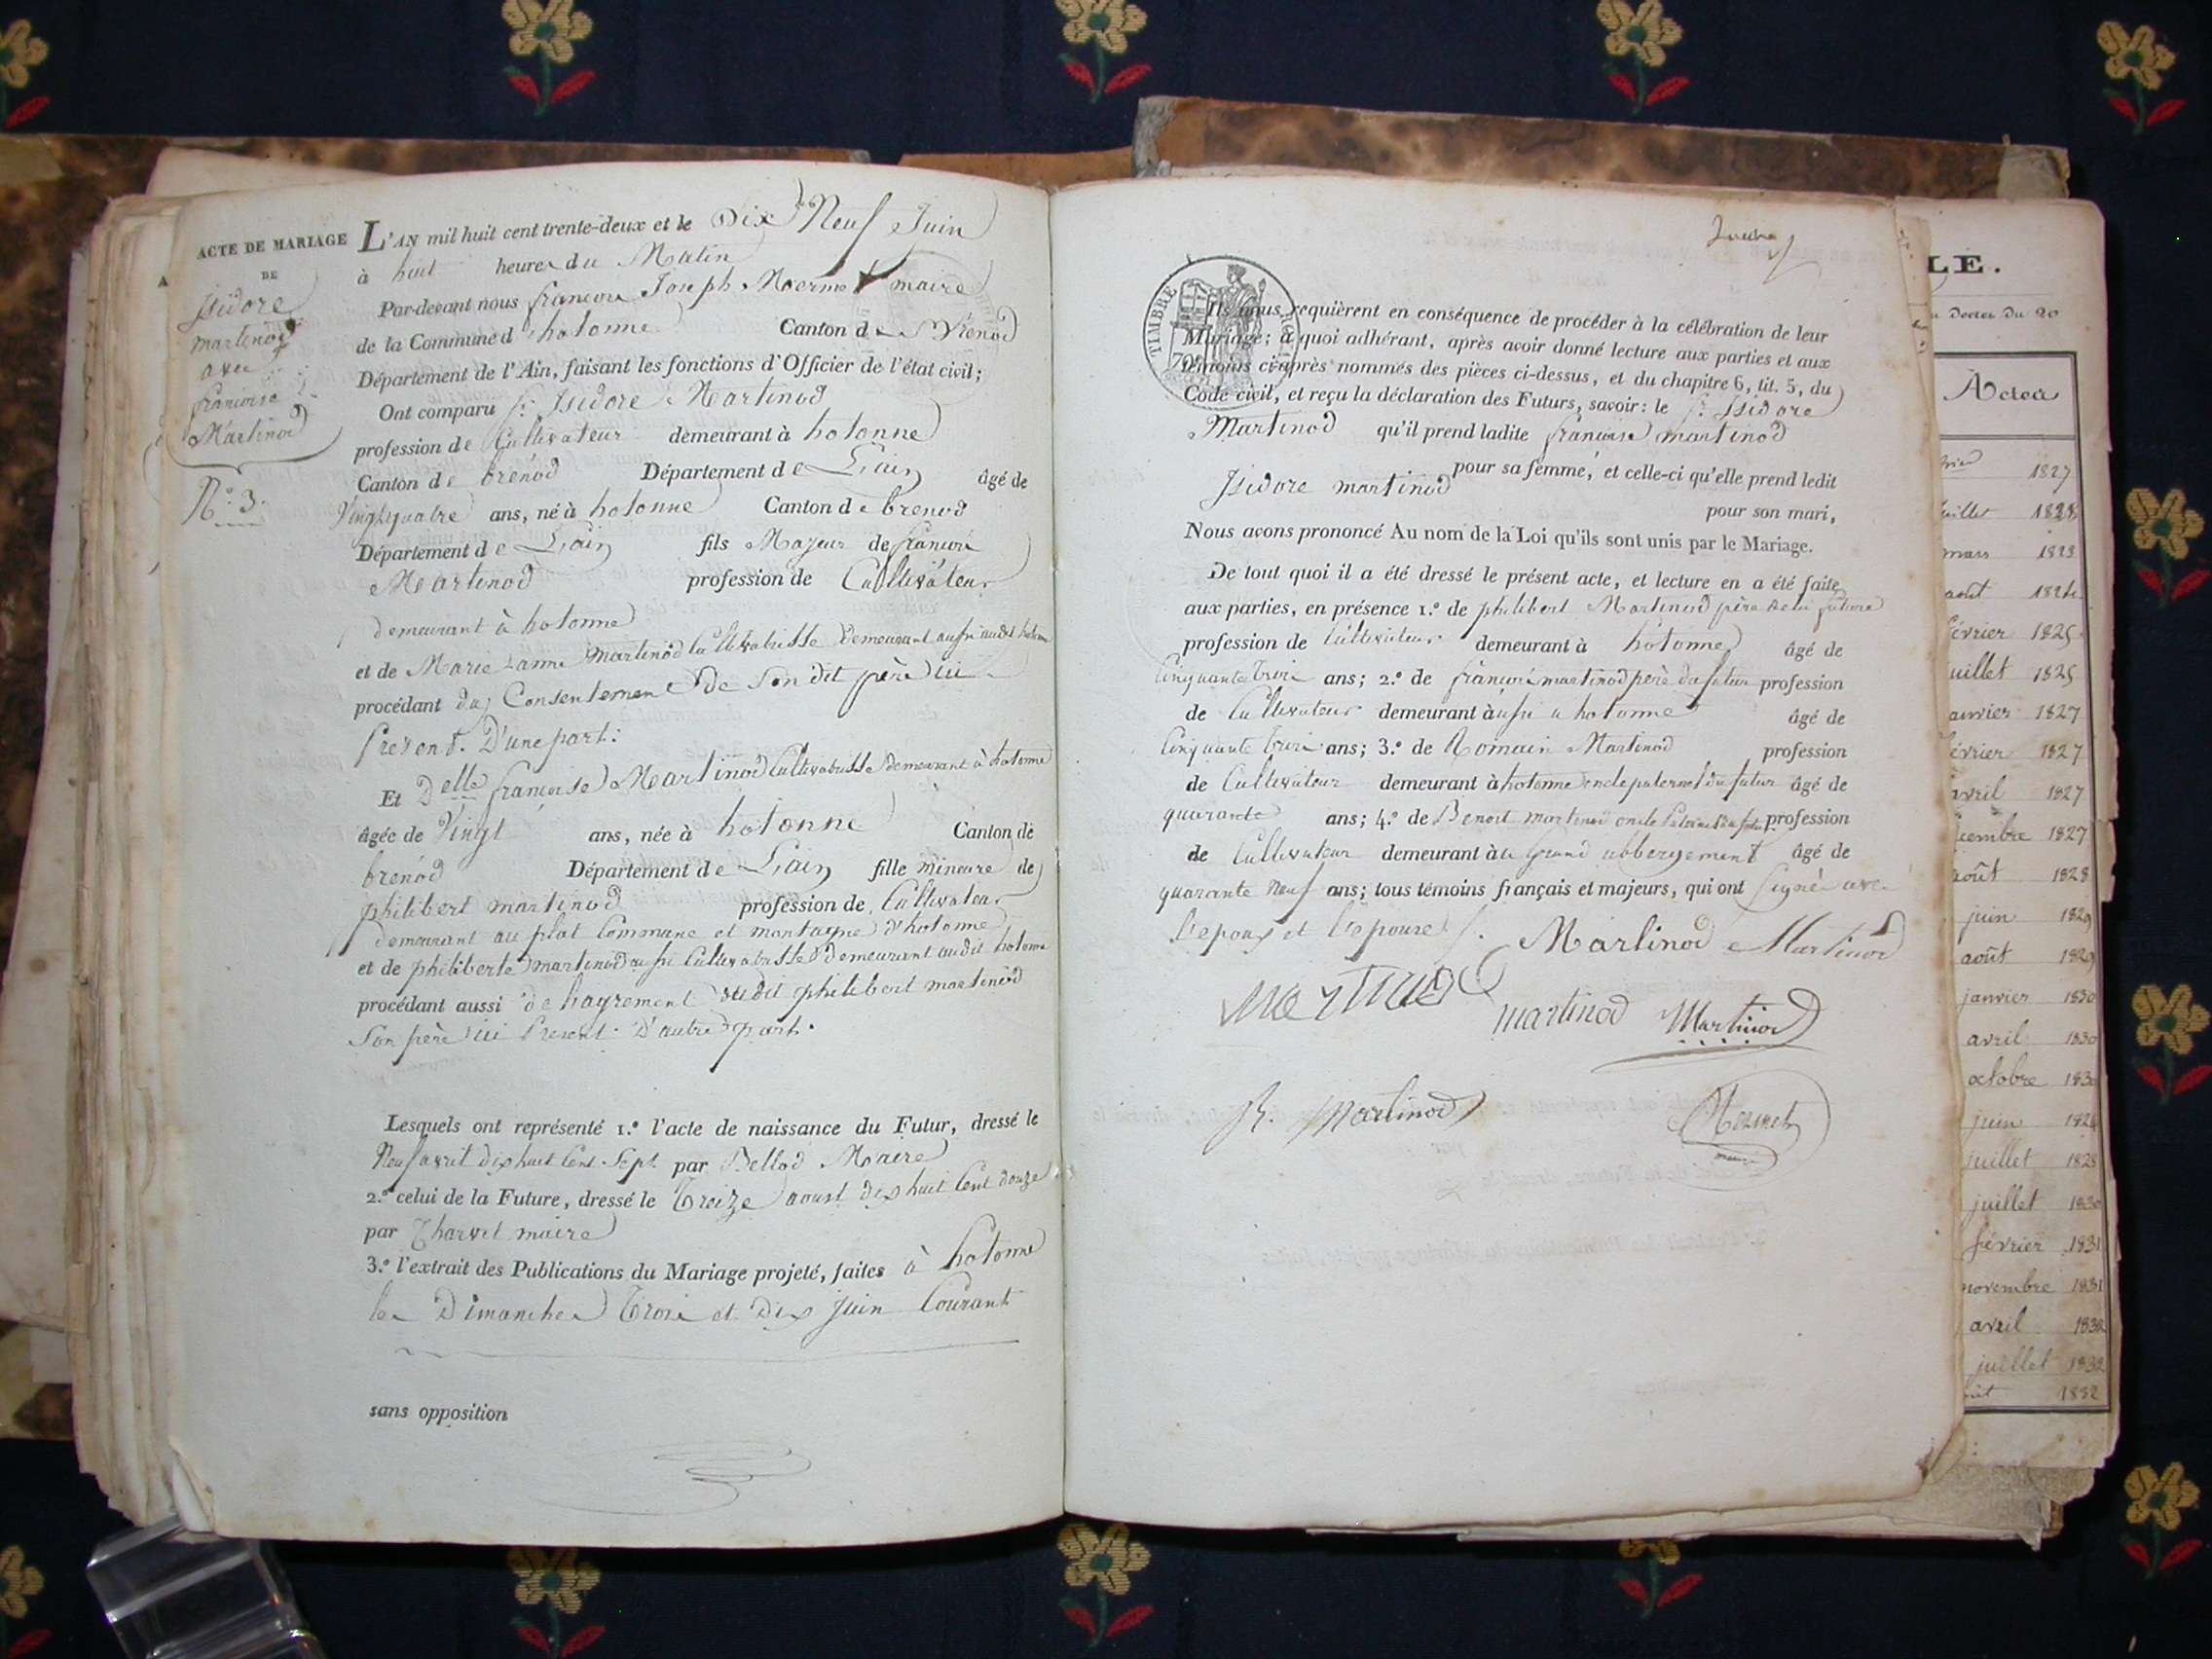 ACTE DE MARIAGE
DE
Isidore
martinod
avec
francoise
Martinod
N.º 3.
L'AN mil huit cent trente-deux et le Dix Neuf Juin
à huit heures du Matin
Par-devant nous francois Joseph maire
de la Commune d'hotonne Canton de Brenod
Département de l'Ain, faisant les fonctions d'Officier de l'état civil;
Ont comparu Sr. Isidore Martinod
profession de Cultivateur demeurant à hotonne
Canton de brenod Département de L'ain âgé de
Vingt quatre ans, né à hotonne Canton de brenod
Département de L'ain fils Majeur de francois
Martinod profession de Cultivateur
demeurant à hotonne
et de Marie anne Martinod Cultivatrisse demeurant aussi audit hotonne
procédant du Consentement de Son dit père ici
Present. D'une part:
Et Delle françoise Martinod Cultivatrisse demeurant à hotonne
âgée de Vingt ans, née à hotonne Canton de
brenod Département de L'ain fille mineure de
philibert martinod profession de Cultivateur
demeurant au plat Commune et montagne d'hotonne
et de philiberte martinod aussi Cultivatrisse demeurant audit hotonne
procédant aussi de lagrement dudit philibert martinod
Son père ici Present. D'autre part.
Lesquels ont représenté 1.º l'acte de naissance du Futur, dressé le
Neuf avril dix huit Cent Sept par Bellod Maire
2.º celui de la Future, dressé le Treize aoust dix huit Cent douze
par Charvet maire
3.º l'extrait des Publications du Mariage projeté, faites à hotonne
les Dimanches Trois et Dix Juin Courant
sans opposition
TIMBRE
Ils nous requièrent en conséquence de procéder à la célébration de leur
Mariage; à quoi adhérant, après avoir donné lecture aux parties et aux
témoins ci-après nommés des pièces ci-dessus, et du chapitre 6, tit. 5, du
Code civil, et reçu la déclaration des Futurs, savoir: le Sr. Isidore
Martinod qu'il prend ladite francoise martinod
pour sa femme, et celle-ci qu'elle prend ledit
Isidore martinod
pour son mari,
Nous avons prononcé Au nom de la Loi qu'ils sont unis par le Mariage.
De tout quoi il a été dressé le présent acte, et lecture en a été faite
aux parties, en présence 1.º de philibert Martinod père de la future
profession de Cultivateur demeurant à hotonne âgé de
Cinquante trois ans; 2.º de francois martinod père du futur profession
de Cultivateur demeurant aussi a hotonne âgé de
Cinquante trois ans; 3.º de Romain Martinod profession
de Cultivateur demeurant à hotonne oncle paternel du futur âgé de
quarante ans; 4.º de Benoit martinod oncle Paternel du futur profession
de Cultivateur demeurant à Grand abbergement âgé de
quarante Neuf ans; tous témoins français et majeurs, qui ont Signé avec
l'epoux et l'epouse.
Martinod Martinod
martinod
martinod Martinod
R. Martinod
Mermet
maire
LE.
Actes
1827
juillet 1828
mars 1823
août 1824
février 1825
juillet 1825
janvier 1827
février 1827
avril 1827
1827
août 1828
juin 1829
août 1829
janvier 1830
avril 1830
octobre 1830
juin 1824
juillet 1828
juillet 1830
février 1831
novembre 1831
avril 1832
juillet 1832
1832